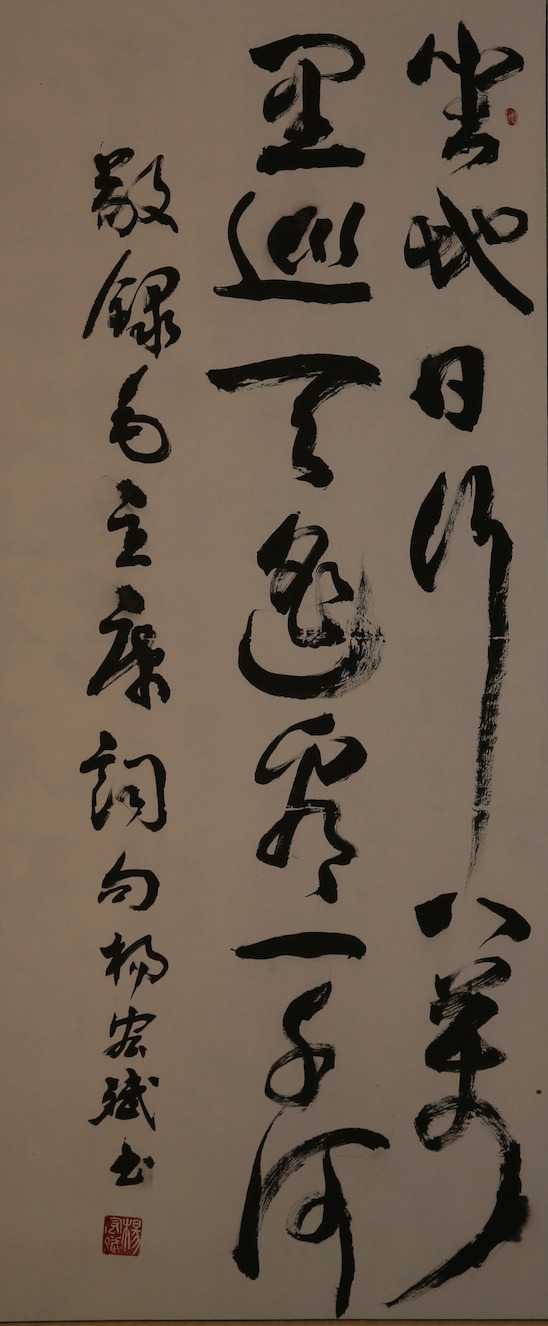 坐地日行八万
里巡天遥看一千河
敬录毛主席词句杨宏斌书